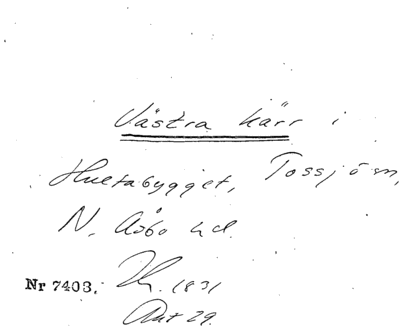 Västra kärr i
Huctabygget, Tossjö sn,
N. Åsbo hd.
Nr 7403. Kr. 1831
Ant 29.